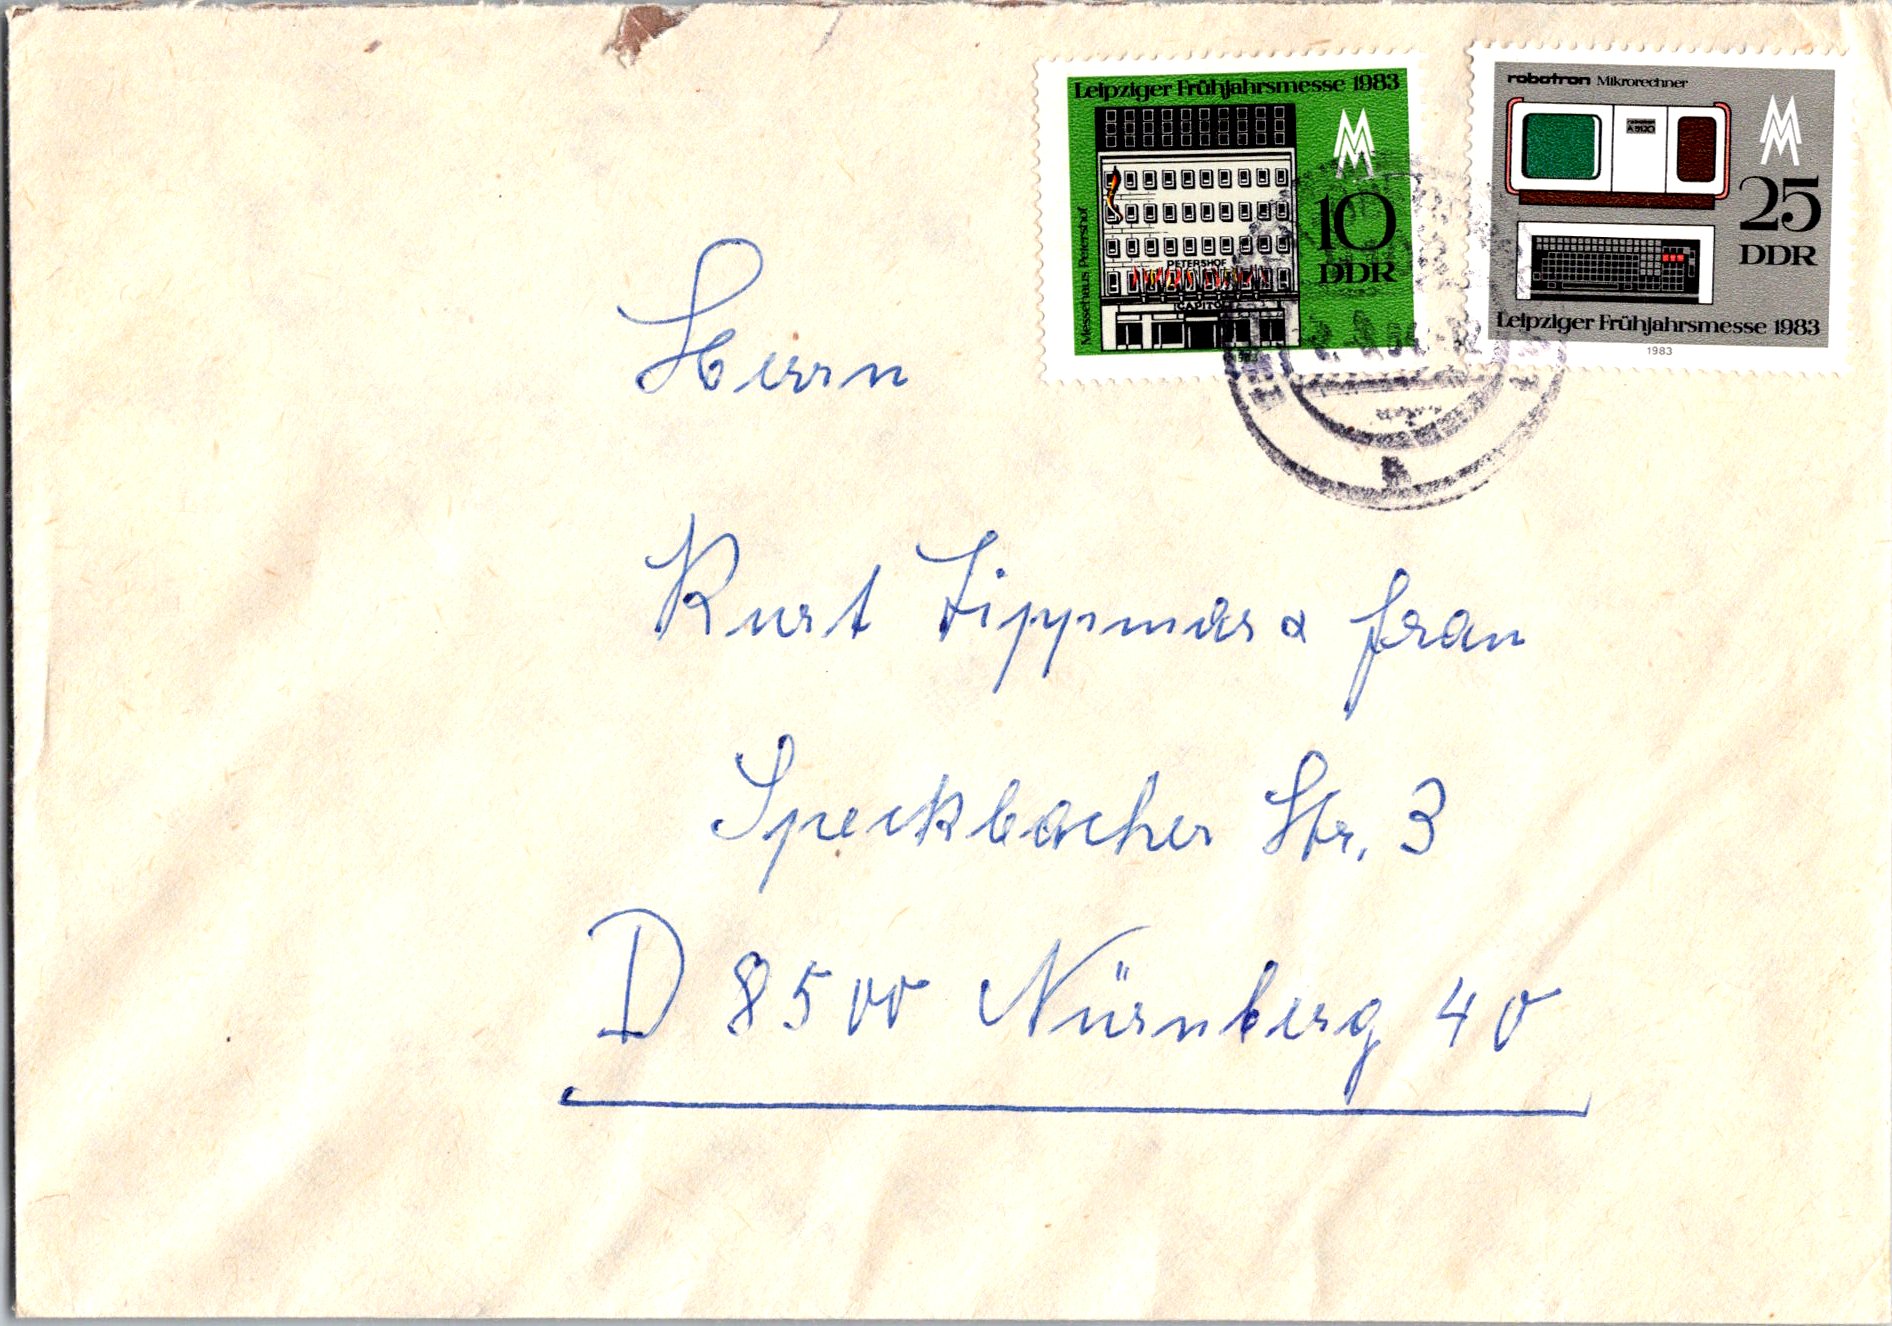 Leipziger Frühjahrsmesse 1983
Messehaus Petershof
PETERSHOF
CAPITOL
10
DDR
robotron Mikrorechner
25
DDR
Leipziger Frühjahrsmesse 1983
1983
Herrn
Kurt Lippmar &
Speckbacher Str. 3
D 8500 Nürnberg 40